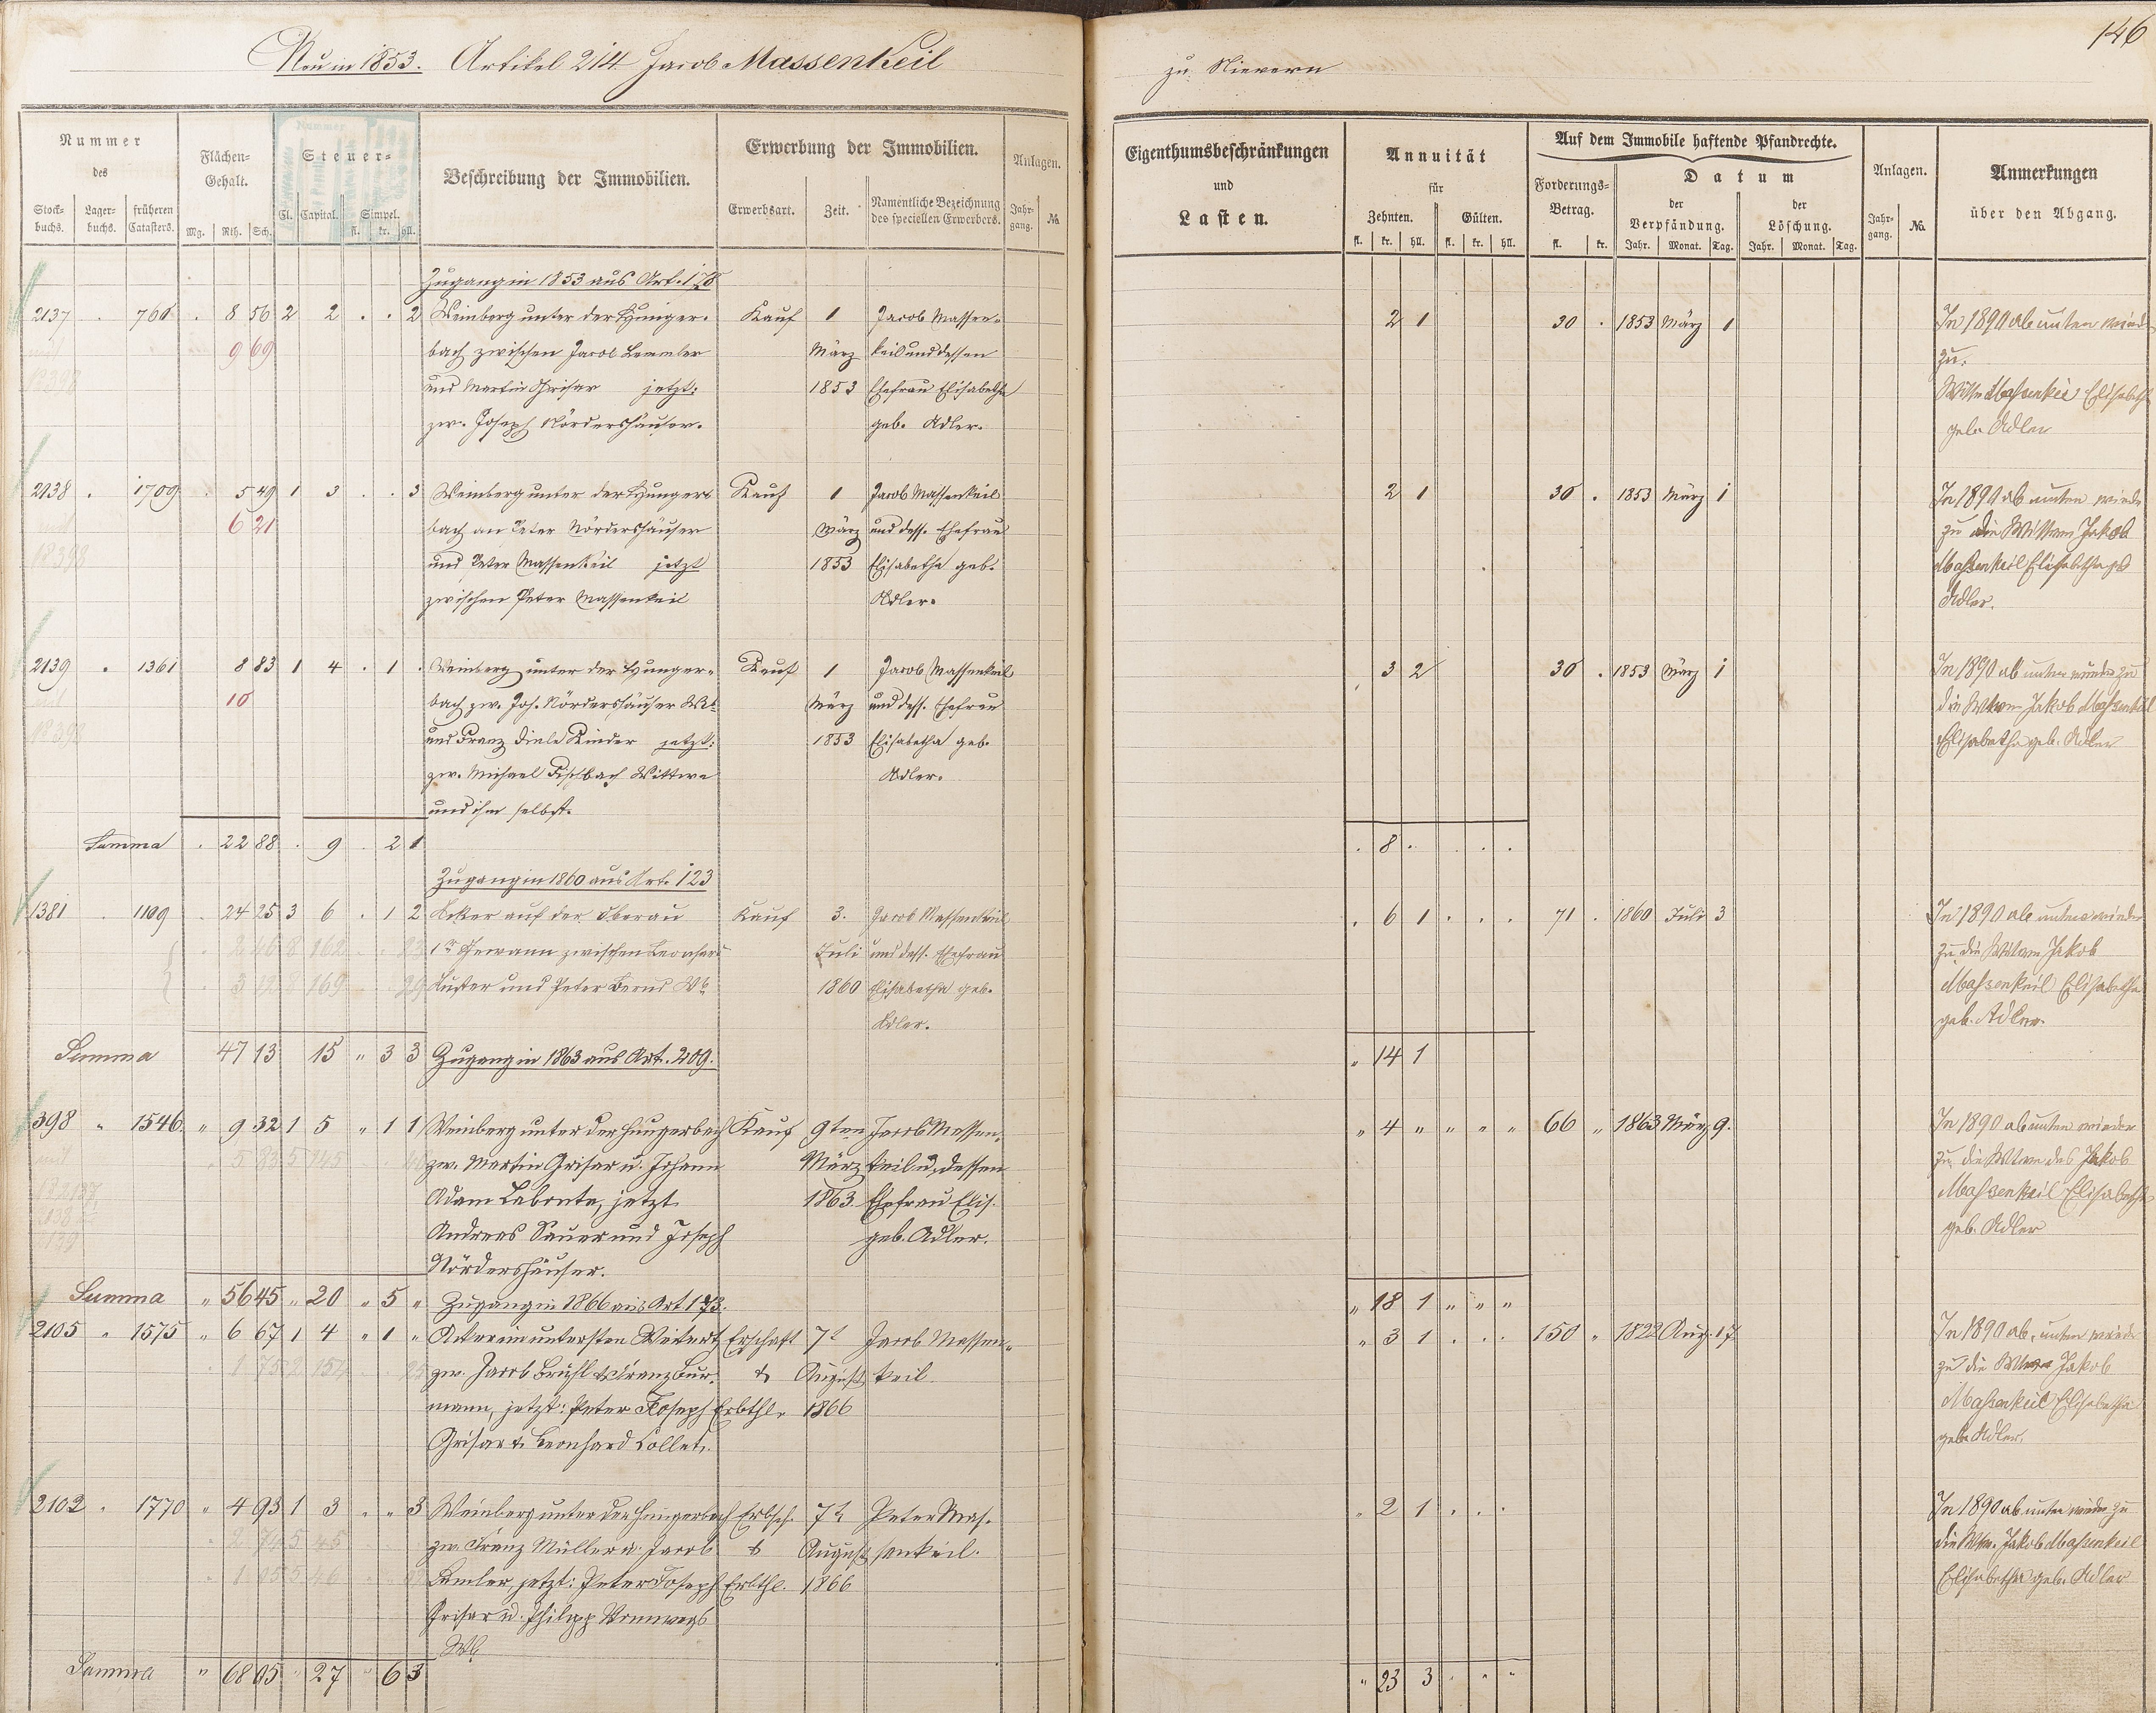 146
Neu in 1853. Artikel 214 Jacob Massenkeil
zu Nievern
Nummer des
Flächen-Gehalt.
Steuer-
Beschreibung der Immobilien.
Erwerbung der Immobilien.
Anlagen.
Stock-buchs. Lager-buchs. früheren Catasters. Mg. Rth. Sch. Cl. Capital. Simpel. fl. kr. hll.
Erwerbsart. Zeit. Namentliche Bezeichnung des speciellen Erwerbers. Jahr-gang. No.
Eigenthumsbeschränkungen und Lasten.
Annuität für
Zehnten. Gülten.
fl. kr. hll. fl. kr. hll.
Auf dem Immobile haftende Pfandrechte.
Forderungs-Betrag. fl. kr.
Datum
der Verpfändung. Jahr. Monat. Tag.
der Löschung. Jahr. Monat. Tag.
Anlagen. Jahr-gang. No.
Anmerkungen über den Abgang.
Zugang in 1853 aus Art. 178
2137 . 761 . 8 56 2 2 . . 2 Weinberg unter der Hunger- Kauf 1 Jacob Massen- 2 1 30 . 1853 März 1 In 1890 ab unten wieder
9 69 bach zwischen Jacob Lemmler März keil und dessen zu.
und Martin Grisar jetzt: 1853 Ehefrau Elisabetha Wittw Massenkeil Elisabeth
zw. Joseph Nördershäuser. geb. Adler. geb. Adler
2138 . 1709 . 5 49 1 3 . . 3 Weinberg unter der Hunger- Kauf 1 Jacob Massenkeil 2 1 30 . 1853 März 1 In 1890 ab unten wieder
6 21 bach an Peter Nördershäuser März und dess. Ehefrau zu die Wittwe Jakob
und Peter Massenkeil jetzt 1853 Elisabetha geb. Massenkeil Elisabetha geb
zwischen Peter Massenkeil Adler. Adler.
2139 . 1361 8 83 1 4 . 1 . Weinberg unter der Hunger- Kauf 1 Jacob Massenkeil 3 2 30 . 1853 März 1 In 1890 ab unten wieder zu
10 bach zw. Joh. Nördershäuser Wb März und dess. Ehefrau die Wtwe Jakob Massenkeil
und Franz Diele Kinder jetzt: 1853 Elisabetha geb. Elisabetha geb. Adler
zw. Michael Fischbach Wittwe Adler.
und ihm selbst.
Summa . 22 88 . 9 . 2 1 . 8 . . . .
Zugang in 1860 aus Art. 123
1381 . 1109 . 24 25 3 6 . 1 2 Acker auf der Oberau Kauf 3. Jacob Massenkeil . 6 1 . . . 71 . 1860 Juli 3 In 1890 ab unten wieder
1r Gewann zwischen Leonhard Juli und dess. Ehefrau zu die Wittwe Jakob
Luster und Peter Bernd Wb 1860 Elisabetha geb. Massenkeil Elisabetha
Adler. geb. Adler.
Summa 47 13 15 " 3 3 Zugang in 1863 aus Art. 209. " 14 1
398 " 1546 " 9 32 1 5 " 1 1 Weinberg unter der Hungerbach Kauf 9ten Jacob Massen- " 4 " " " " 66 " 1863 März 9. In 1890 ab unten wieder
zw. Martin Grisar u. Johann März keil u. dessen zu die Wtwe des Jakob
Adam Labonte, jetzt 1863 Ehefrau Elis. Massenkeil Elisabetha
Andreas Sauer und Joseph geb. Adler. geb. Adler
Nördershäuser.
Summa " 56 45 " 20 " 5 " Zugang in 1866 aus Art. 173. " 18 1 " " "
2105 " 1575 " 6 67 1 4 " 1 " Acker im untersten Erbschaft 7t Jacob Massen- " 3 1 . . . 150 " 1822 Aug. 17 In 1890 ab unten wieder
zw. Jacob Brühl & Franz Bur- & August keil zu die Wtwe Jakob
mann, jetzt: Peter Joseph Erbthl. 1866 Massenkeil Elisabetha
Grisar & Leonhard Collet. geb. Adler.
2102 . 1770 " 4 93 1 3 " " 3 Weinberg unter der Hungerbach Erbsch. 7t Peter Mas- " 2 1 . . . In 1890 ab unten wieder zu
zw. Franz Müller u. Jacob & August senkeil. die Wtw. Jakob Massenkeil
Lemler, jetzt: Peter Joseph Erbthl. 1866 Elisabetha geb. Adler
Grisar u. Philipp
Wb
Summa " 68 05 " 27 " 6 3 " 23 3 " " "